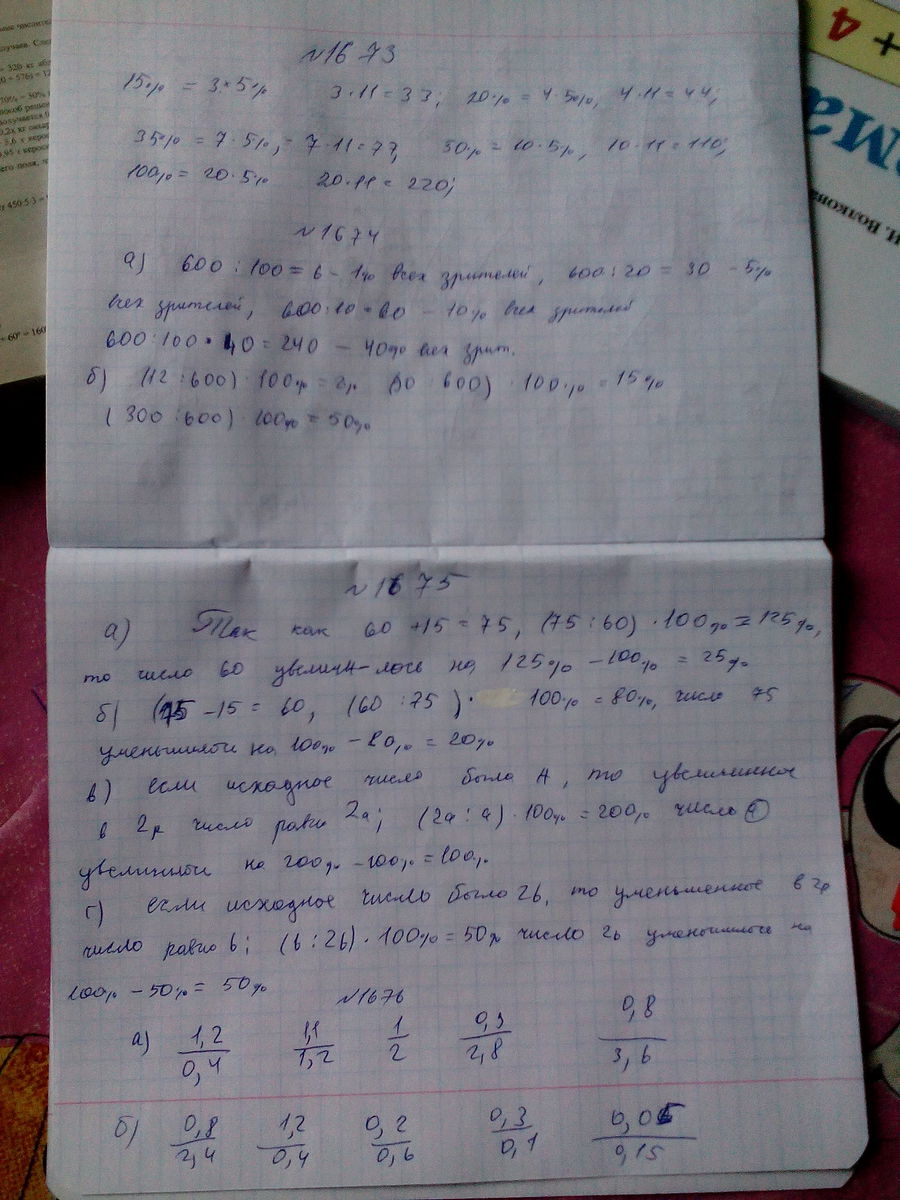 №1673
15% = 3·5% 3·11=33; 20% = 4·5%, 4·11=44;
35% = 7·5%, = 7·11=77, 50% = 10·5%, 10·11=110;
100% = 20·5% 20·11=220;
№1674
а) 600:100=6 – 1% всех зрителей, 600:20=30 – 5%
всех зрителей, 600:10=60 – 10% всех зрителей
600:100·40=240 – 40% всех зрит.
б) (12:600)·100%=2% (90:600)·100%=15%
(300:600)·100%=50%
№1675
а) Так как 60+15=75, (75:60)·100%=125%,
то число 60 увелич-лось на 125%–100%=25%
б) (75–15=60, (60:75)· 100%=80%, число 75
уменьшилось на 100%–80%=20%
в) если исходное число было А, то увеличенное
в 2р число равно 2а; (2а:а)·100%=200% число а
увеличилось на 200%–100%=100%.
г) если исходное число было 2b, то уменьшенное в 2р
число равно b; (b:2b)·100%=50% число 2b уменьшилось на
100%–50%=50%
№1676
а) 1,2/0,4 1,1/1,2 1/2 0,9/2,8 0,8/3,6
б) 0,8/2,4 1,2/0,4 0,2/0,6 0,3/0,1 0,05/0,15
+ 4
Ма
И. Волкова